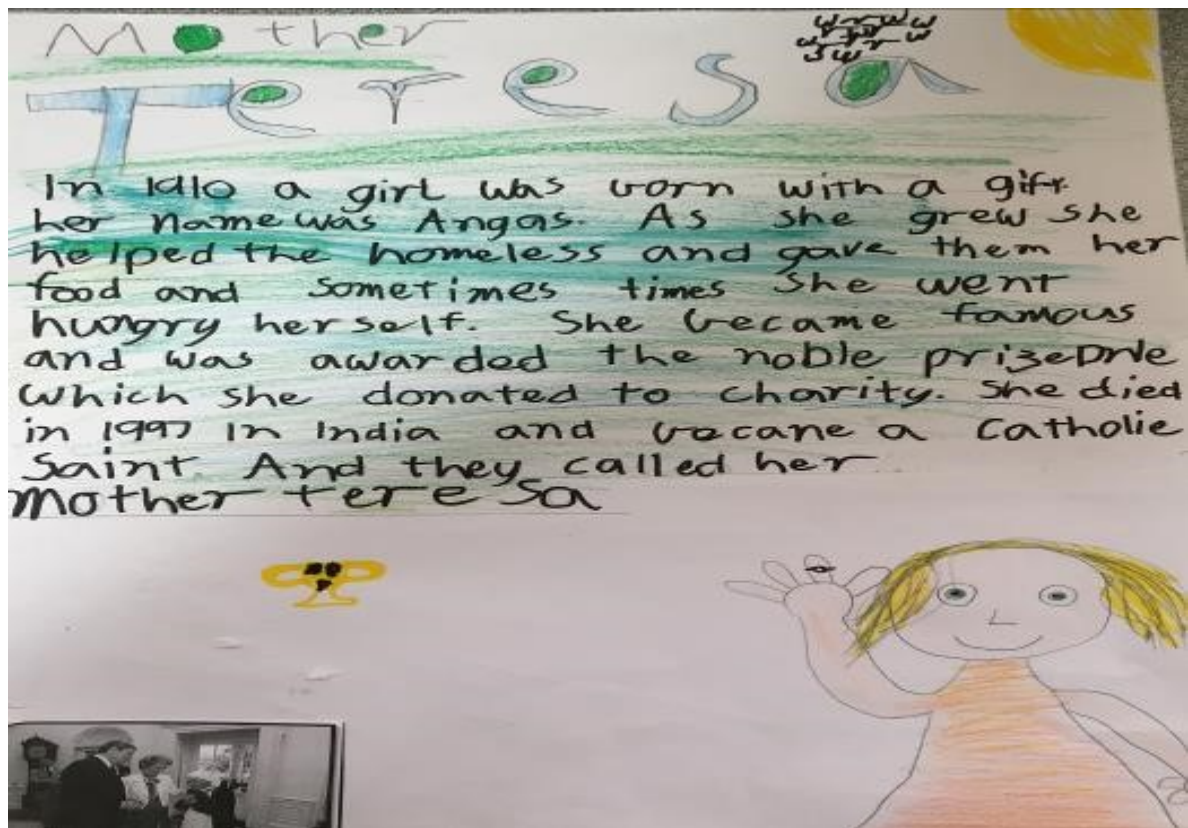 Mother
Teresa
In 1910 a girl was born with a gift.
her name was Angas. As she grew she
helped the homeless and gave them her
food and sometimes times she went
hungry herself. She became famous
and was awarded the noble prize
which she donated to charity. She died
in 1997 In India and vecane a Catholie
Saint. And they called her
Mother teresa